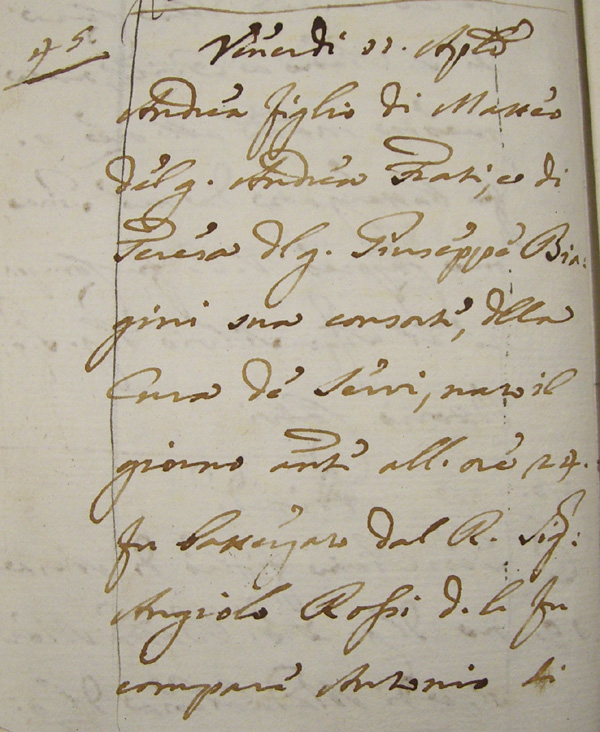 45.
Venerdi 11. Aple
Andrea figlio di Matteo
del q. Andrea Frati, e di
Teresa del q. Giuseppe Bia-
gini sua consorte, della
Cura de Servi, nato il
giorno ante all. ore 24.
fu battezzato dal R. Sig:
Angiolo Rossi d. li fu
compare Antonio di